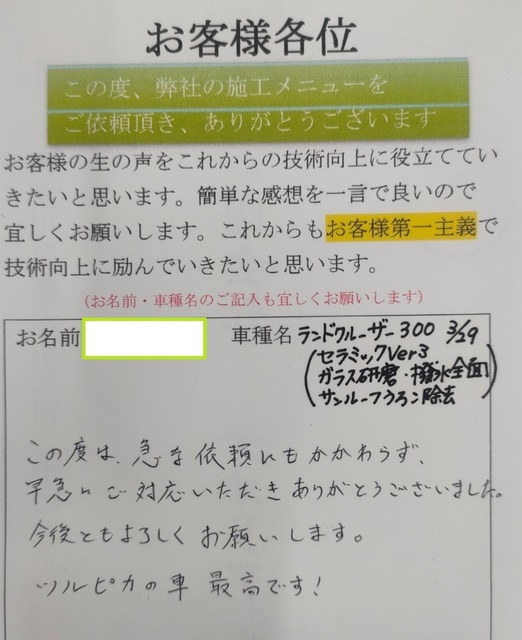 お客様各位
この度、弊社の施工メニューを
ご依頼頂き、ありがとうございます
お客様の生の声をこれからの技術向上に役立ててい
きたいと思います。簡単な感想を一言で良いので
宜しくお願いします。これからもお客様第一主義で
技術向上に励んでいきたいと思います。
(お名前・車種名のご記入も宜しくお願いします)
お名前 車種名 ランドクルーザー300 3/29
(セラミックVer3.
ガラス研磨・撥水全面)
サンルーフうろこ除去
この度は、急な依頼にもかかわらず、
早急にご対応いただきありがとうございました。
今後ともよろしくお願いします。
ツルピカの車 最高です!